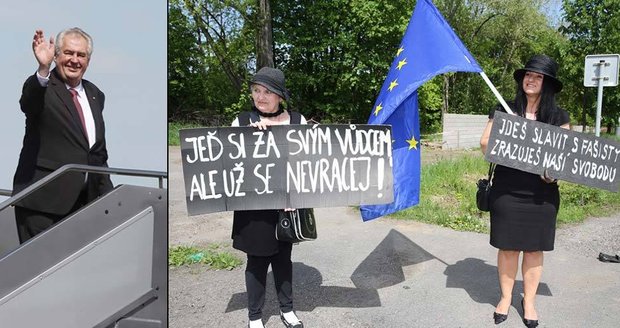 JEĎ SI ZA SVÝM VŮDCEM
ALE UŽ SE NEVRACEJ!
JDEŠ SLAVIT S FAŠISTY
ZRAZUJEŠ NAŠI SVOBODU